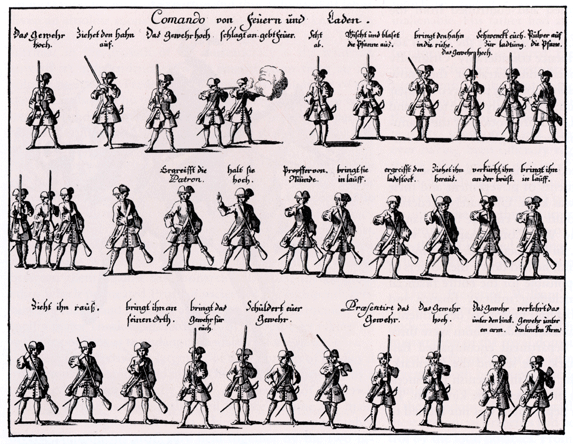 Comando von Feuern und Laden.
Das Gewehr
hoch.
Ziehet den hahn
auf.
Das Gewehr hoch.
schlagt an. gebt feuer.
Seht
ab.
Wischt und blaset
die Pfanne aus.
bringt den hahn
in die ruhe.
das Gewehr hoch.
Schwenckt euch.
zur ladung.
Pulver auf
die Pfane.
Ergreifft die
Patron.
halt sie
hoch.
Propffe von
Munde.
bringt sie
in lauff.
ergreifft den
ladestock.
Ziehet ihn
heraus.
verkürtzt ihn
an der brust.
bringt ihn
in lauff.
Zieht ihn rauß.
bringt ihn an
seinen Orth.
bringt das
Gewehr für
euch.
Schuldert euer
Gewehr.
Præsentirt das
Gewehr.
Das Gewehr
hoch.
Das Gewehr
unter den linck
en arm.
verkehrt das
Gewehr unter
den lincken Arm